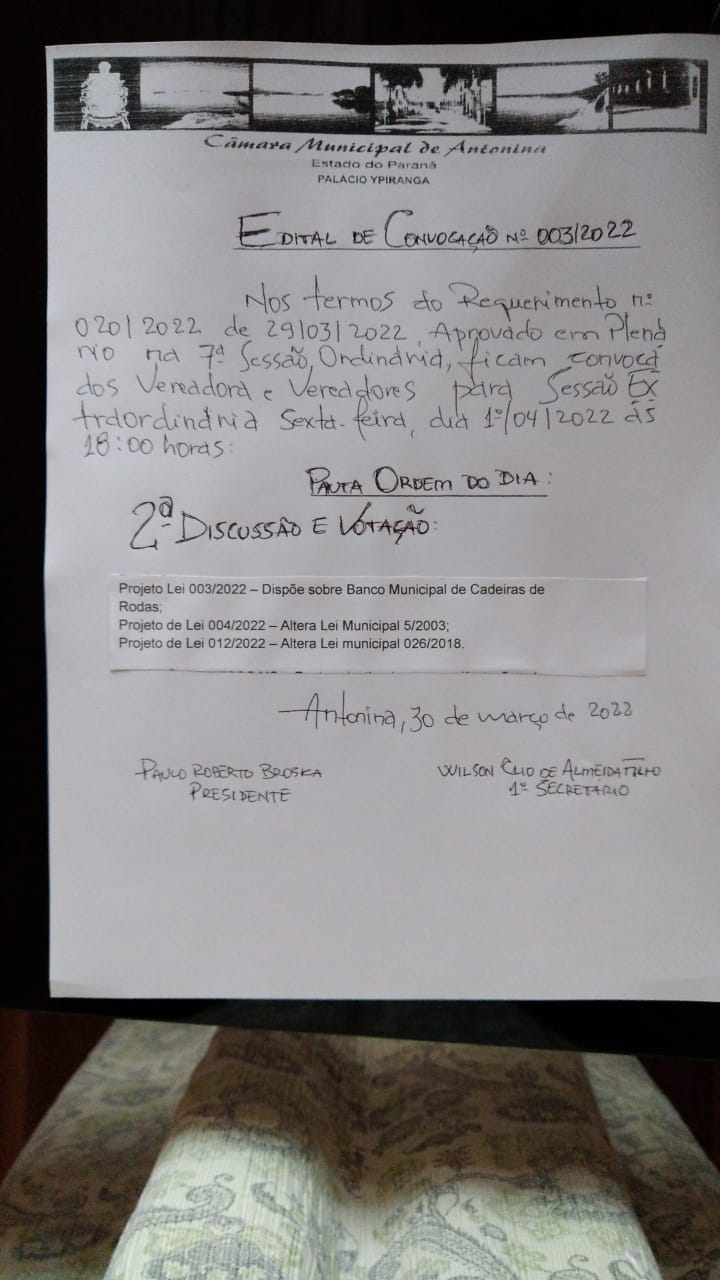 Câmara Municipal de Antonina
Estado do Paraná
PALÁCIO YPIRANGA
EDITAL DE CONVOCAÇÃO Nº 003/2022
Nos termos do Requerimento nº
020/2022 de 29/03/2022, Aprovado em Plená
rio na 7ª Sessão Ordinária, ficam convoca
dos Vereadora e Vereadores para Sessão Ex
traordinária Sexta-feira, dia 1º/04/2022 às
18:00 horas:
PAUTA ORDEM DO DIA:
2ª DISCUSSÃO E VOTAÇÃO:
Projeto Lei 003/2022 – Dispõe sobre Banco Municipal de Cadeiras de
Rodas;
Projeto de Lei 004/2022 – Altera Lei Municipal 5/2003;
Projeto de Lei 012/2022 – Altera Lei municipal 026/2018.
Antonina, 30 de março de 2022
PAULO ROBERTO BROSKA
PRESIDENTE
WILSON CLIO DE ALMEIDA FILHO
1º SECRETÁRIO